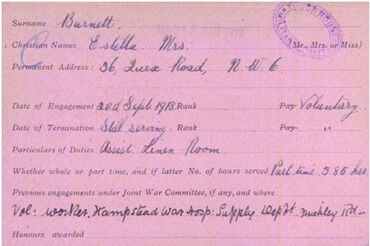 Surname Burnett.
Christian Names Estella Mrs. (Mr., Mrs. or Miss)
Permanent Address: 36, Quex Road, N.W.6
Date of Engagement 20d Sept 1918 Rank Pay Voluntary.
Date of Termination Still serving. Rank Pay "
Particulars of Duties Assist. Linen Room.
Whether whole or part time, and if latter No. of hours served Part time 385 hrs
Previous engagements under Joint War Committee, if any, and where
Vol: worker, Hampstead War Hosp: Supply Depôt Finchley Rd—
Honours awarded